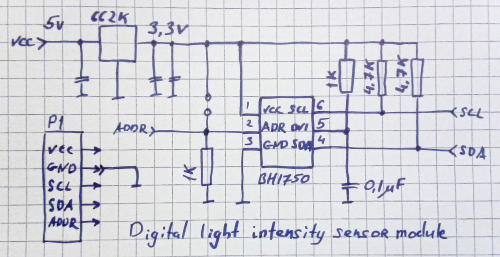 5v 662K 3,3v
VCC
1K 4,7K 4,7K
1 VCC SCL 6
SCL
ADDR 2 ADR DVI 5
3 GND SDA 4
SDA
BH1750
1K
0,1µF
P1
VCC
GND
SCL
SDA
ADDR
Digital light intensity sensor module